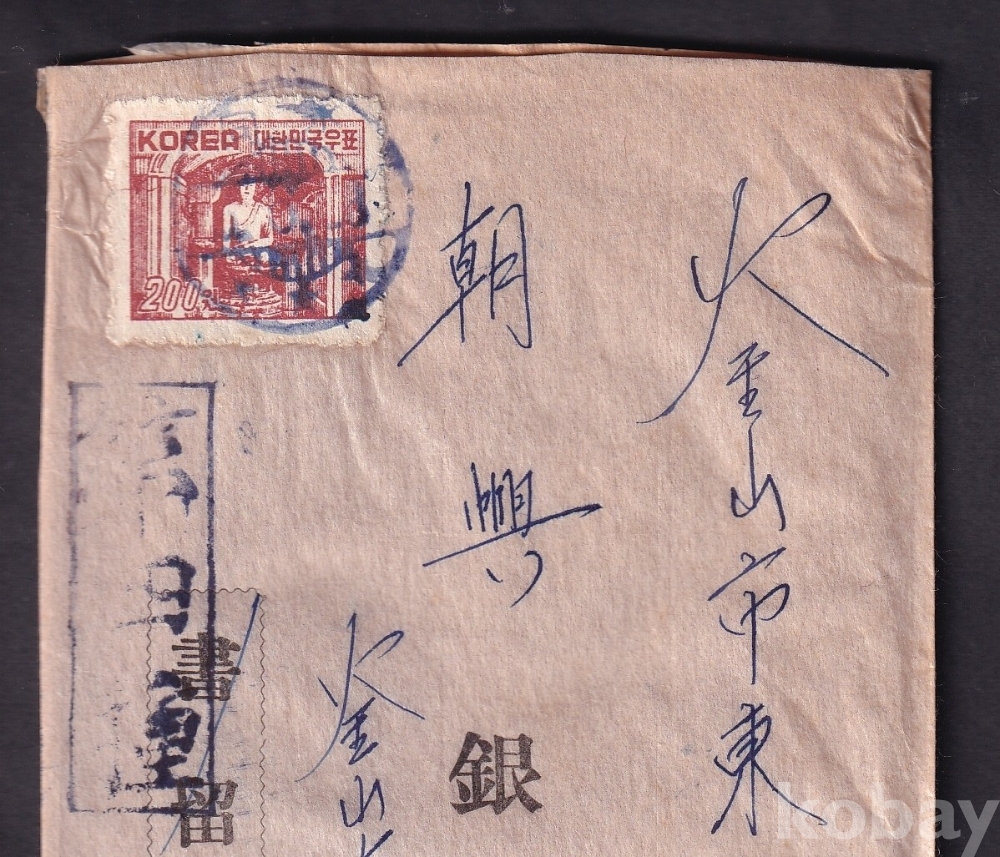 KOREA 대한민국우표
200원
釜山市東
朝興銀
釜山
書留
kobay